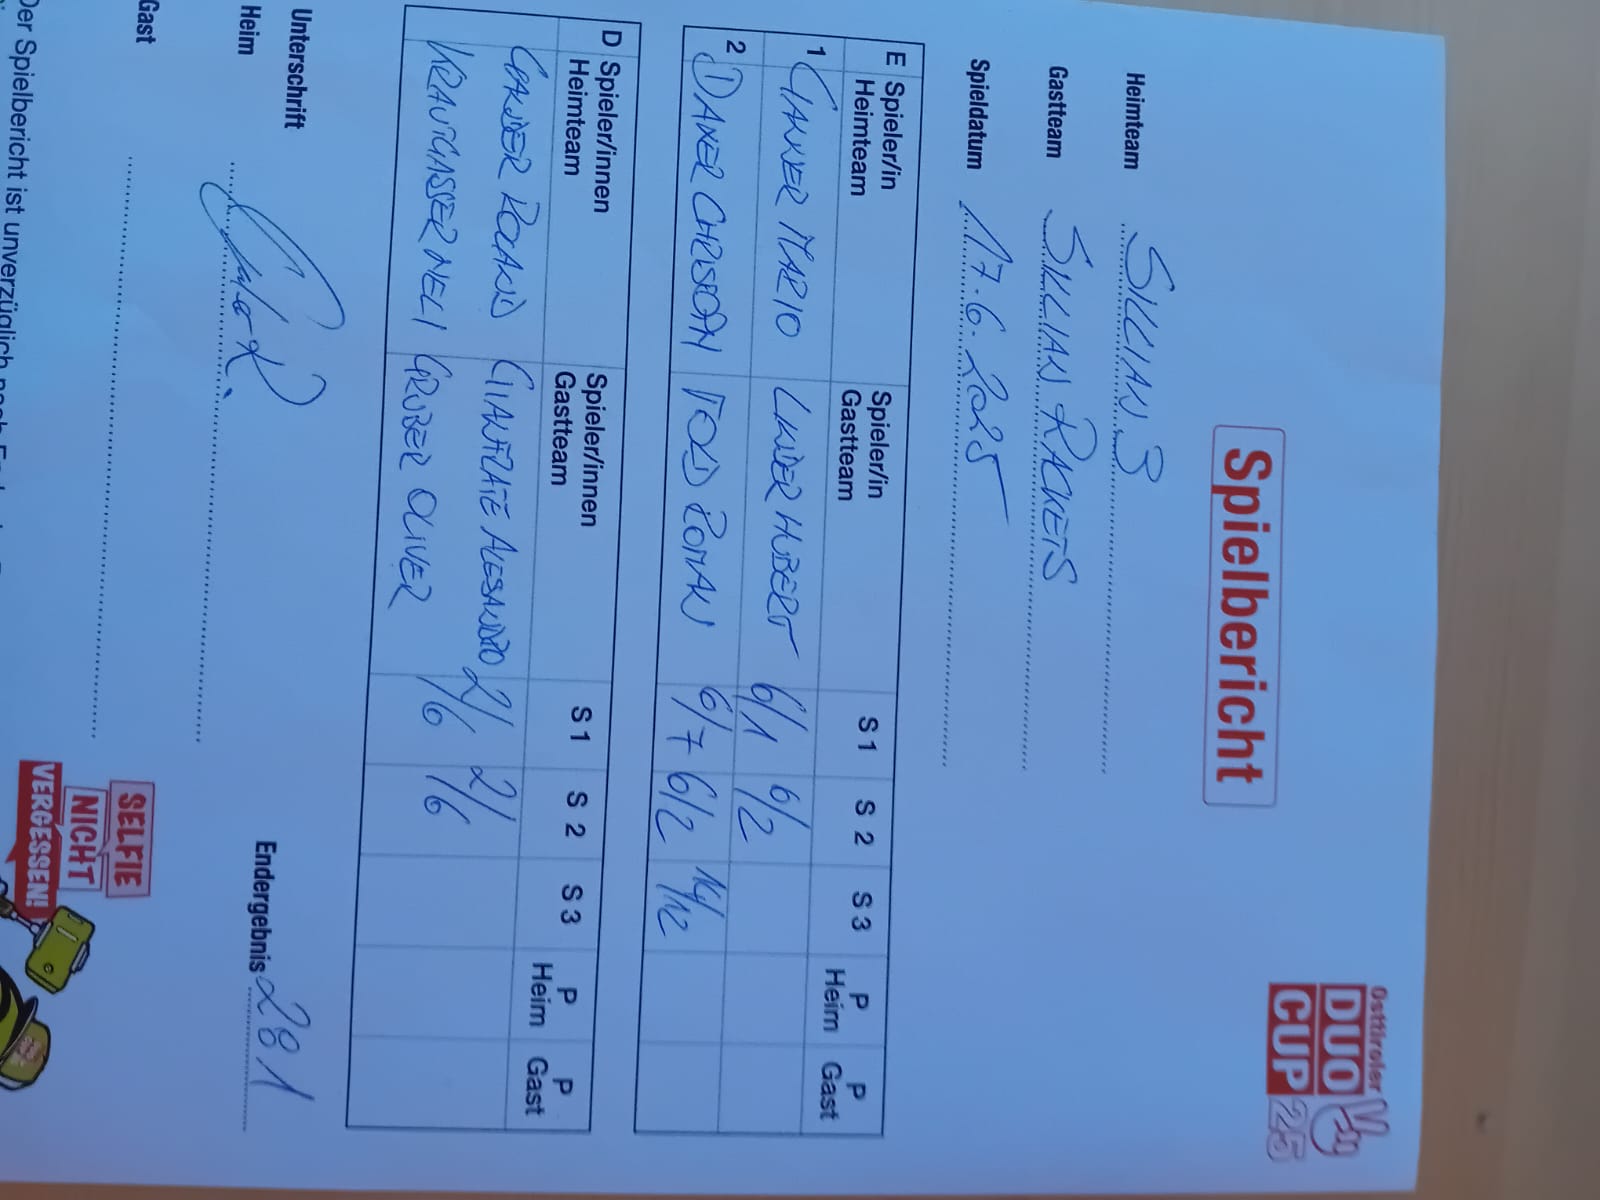 Osttiroler
DUO
CUP 25
Spielbericht
Heimteam SILLIAN 3
Gastteam SILLIAN RACKETS
Spieldatum 17.6.2025
E Spieler/in Heimteam Spieler/in Gastteam S 1 S 2 S 3 P Heim P Gast
1 GANNER MARIO LINDER HUBERT 6/1 6/2
2 DAXER CHRISTOPH ROMAN 6/7 6/2 14/12
D Spieler/innen Heimteam Spieler/innen Gastteam S 1 S 2 S 3 P Heim P Gast
GANDER ROLAND GIANFRATE ALESANDRO 2/6 2/6
KRAUTGASSER NELI GRUBER OLIVER
Endergebnis 2:1
Unterschrift
Heim
Gast
SELFIE
NICHT
VERGESSEN!
Der Spielbericht ist unverzüglich nach